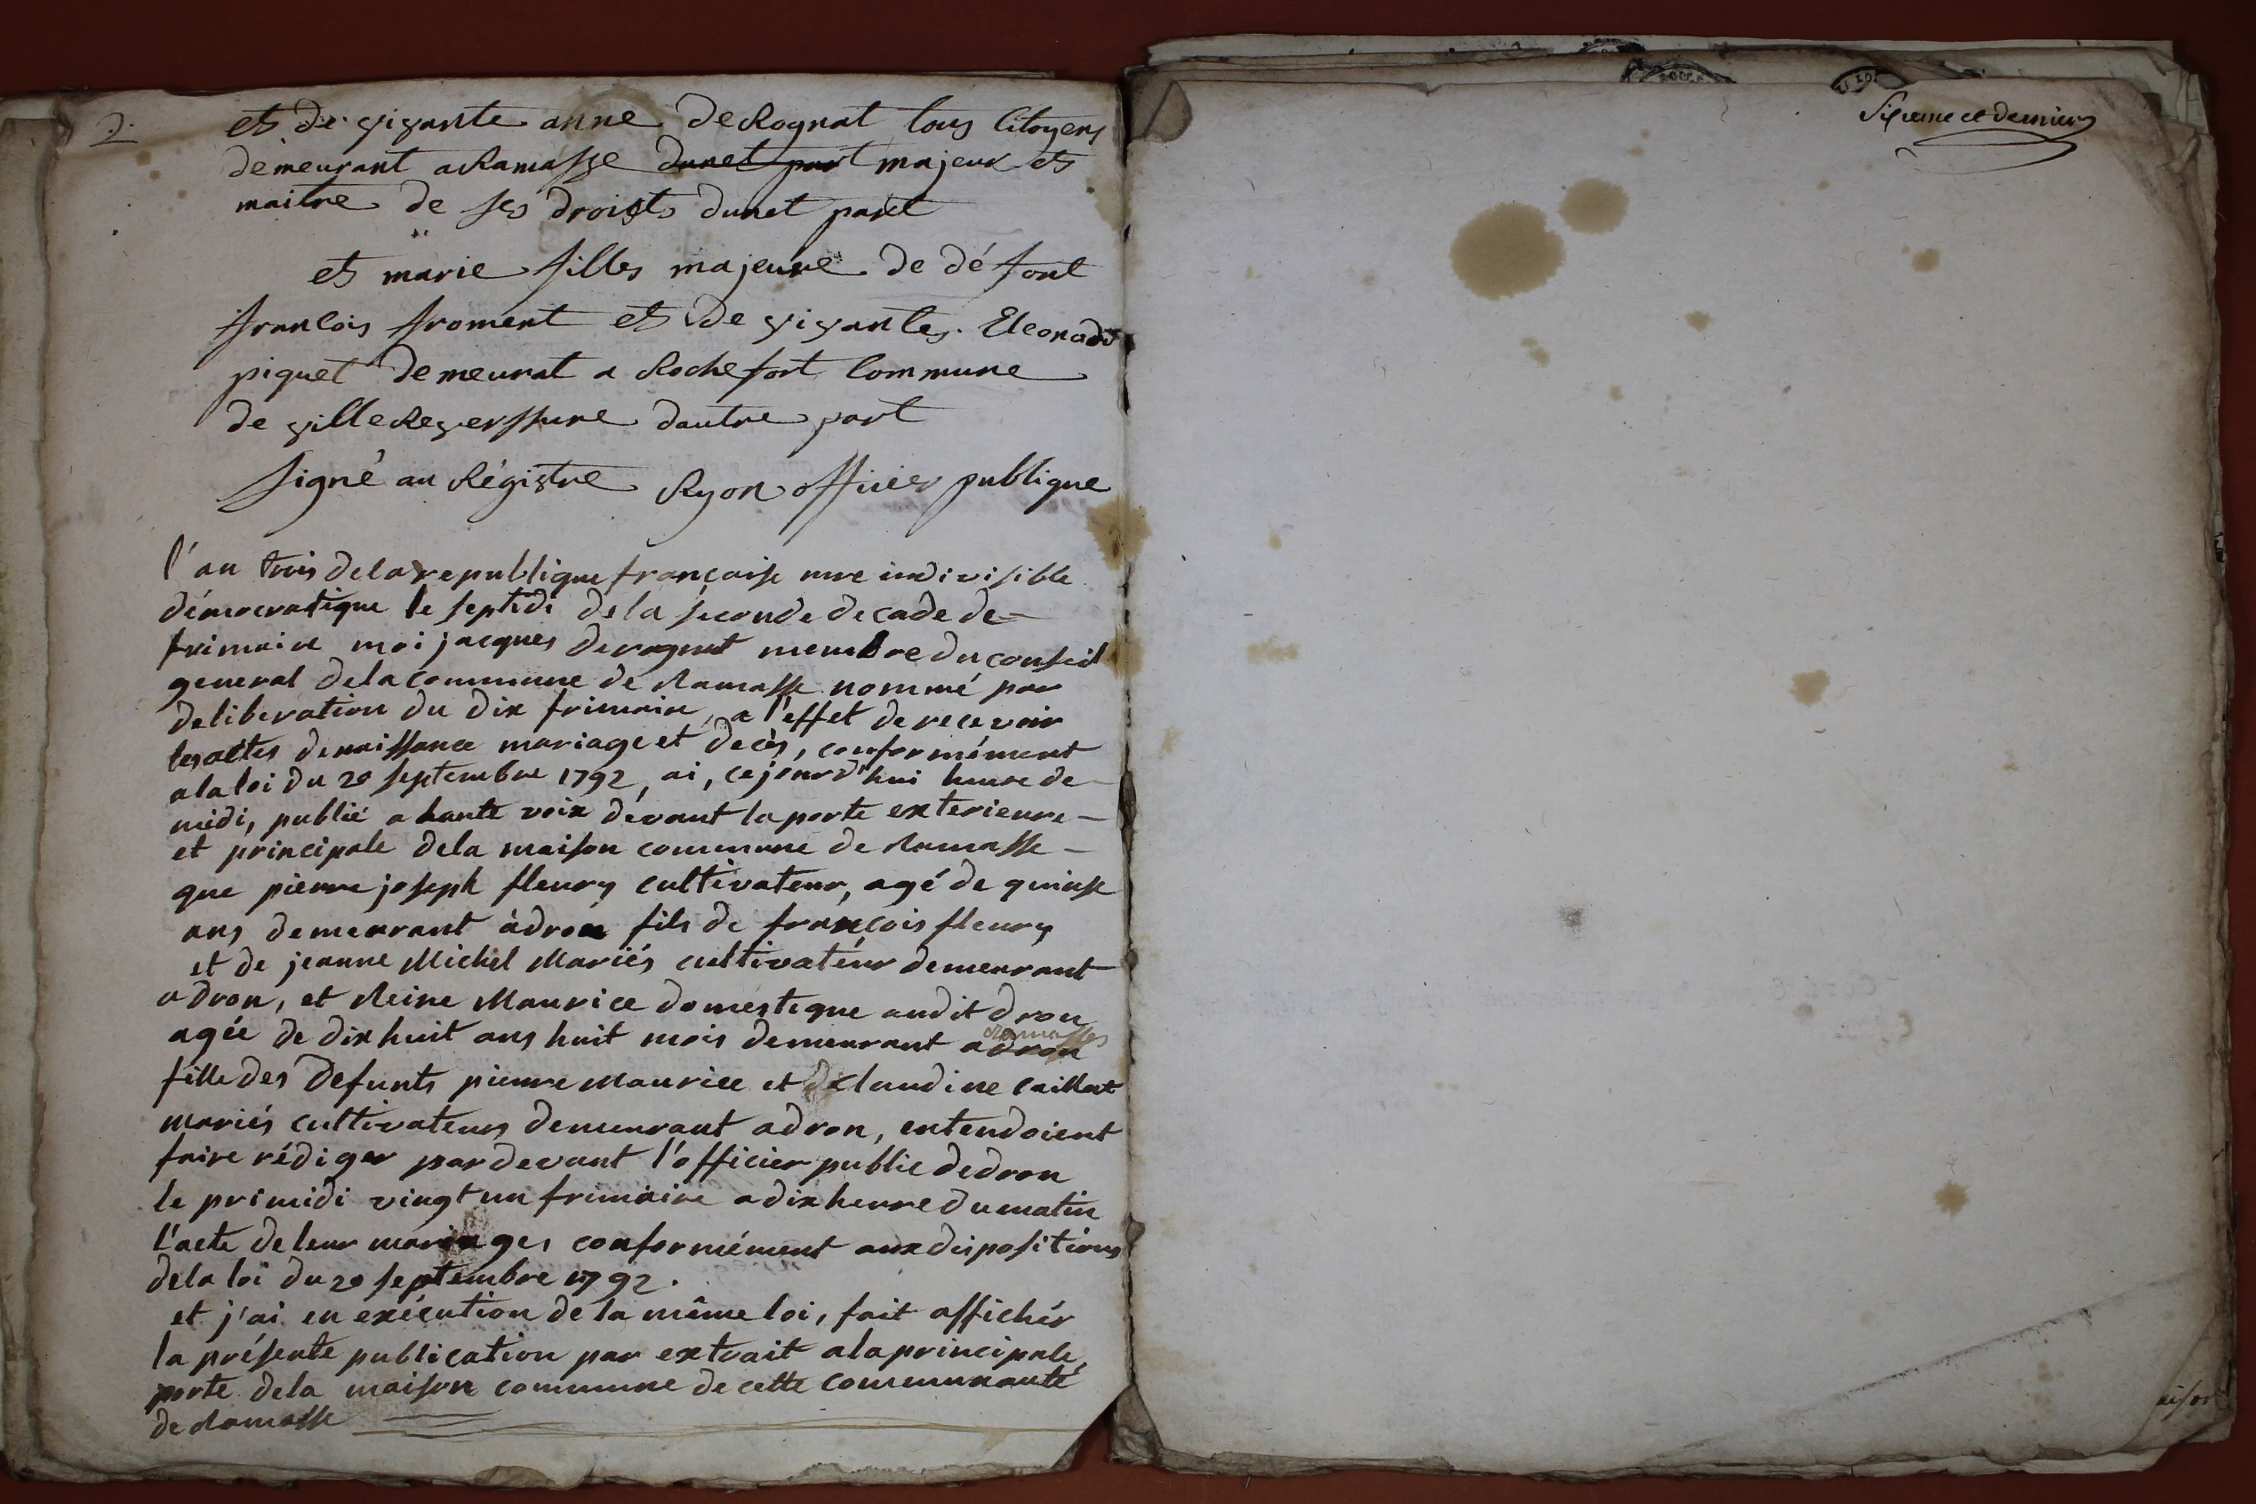 2.
et de vivante anne deRognat tous Citoyens
demeurant a Ramasse dunet part majeur et
maitre de ses droists dunet part
et marie filles majeure de défont
francois froment et de vivantes. Eleonade
piquet demeurat a Rochefort Commune
de villeReverssure dautre part
signé au Régistre Ryon officier publique
l'an trois de la republique française une indivisible
démocratique le septidi de la seconde decade de
frimaire moi jacques derognat membre du conseil
general de la commune de Ramasse nommé par
deliberation du dix frimaire, a l'effet de recevoir
les actes de naissance mariage et decès, conformément
a la loi du 20 septembre 1792, ai, cejourd'hui heure de
midi, publié a haute voix dévant la porte exterieure
et principale de la maison commune de Ramasse
que pierre joseph fleury cultivateur, agé de quinse
ans demeurant à dron fils de françois fleury
et de jeanne Michel Mariés cultivatéur demeurant
a dron, et Reine Maurice domestique audit dron
Ramasse
agée de dix huit ans huit mois demeurant a dron
fille des defunts pierre Maurice et de Claudine Caillat
mariés cultivateurs demeurant a dron, entendoient
faire rédiger pardevant l'officier public de dron
le primidi vingt un frimaire a dix heure du matin
l'acte de leur mariages conformément aux dispositions
de la loi du 20 septembre 1792.
et j'ai en exécution de la même loi, fait affichér
la présente publication par extrait a la principale
porte de la maison commune de cette communauté
de Ramasse
Sixieme et dernier